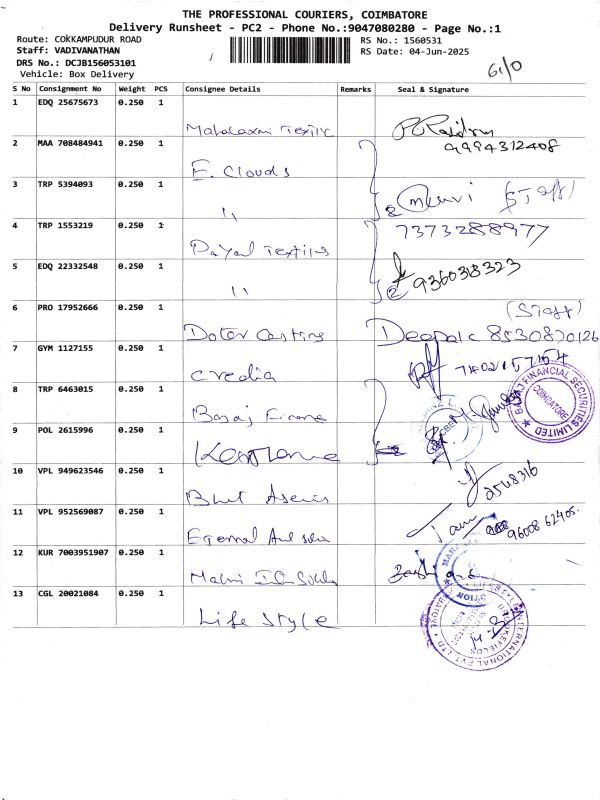 THE PROFESSIONAL COURIERS, COIMBATORE
Delivery Runsheet - PC2 - Phone No.:9047080280 - Page No.:1
Route: COKKAMPUDUR ROAD
RS No.: 1560531
Staff: VADIVANATHAN
RS Date: 04-Jun-2025
DRS No.: DCJB156053101
Vehicle: Box Delivery
S No Consignment No Weight PCS Consignee Details Remarks Seal & Signature
1 EDQ 25675673 0.250 1
Mahalaxmi Textile
9994312408
2 MAA 708484941 0.250 1
E. Clouds
3 TRP 5394093 0.250 1
" (Staff)
4 TRP 1553219 0.250 1
7373288977
Dayal Textiles
5 EDQ 22332548 0.250 1
" 936038323
6 PRO 17952666 0.250 1
(Staff)
Doter Casting Deepak 8530870126
7 GYM 1127155 0.250 1
Credia
8 TRP 6463015 0.250 1
Bajaj Finance
BAJAJ FINANCIAL SECURITIES LIMITED
COIMBATORE
9 POL 2615996 0.250 1
10 VPL 949623546 0.250 1
2568316
11 VPL 952569087 0.250 1
96008 62405
12 KUR 7003951907 0.250 1
13 CGL 20021084 0.250 1
Life Style